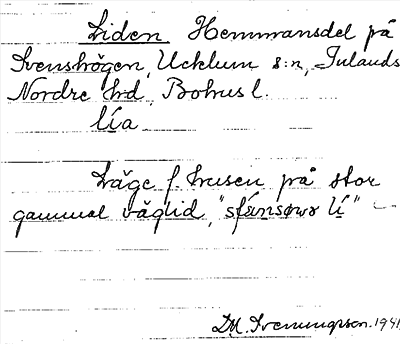 Liden Hemmansdel på
Svenshögen, Ucklum s:n, Inlands
Nordre hd, Bohusl.
lía
Läge f. husen på stor
gammal väglid,
D.M. 1941